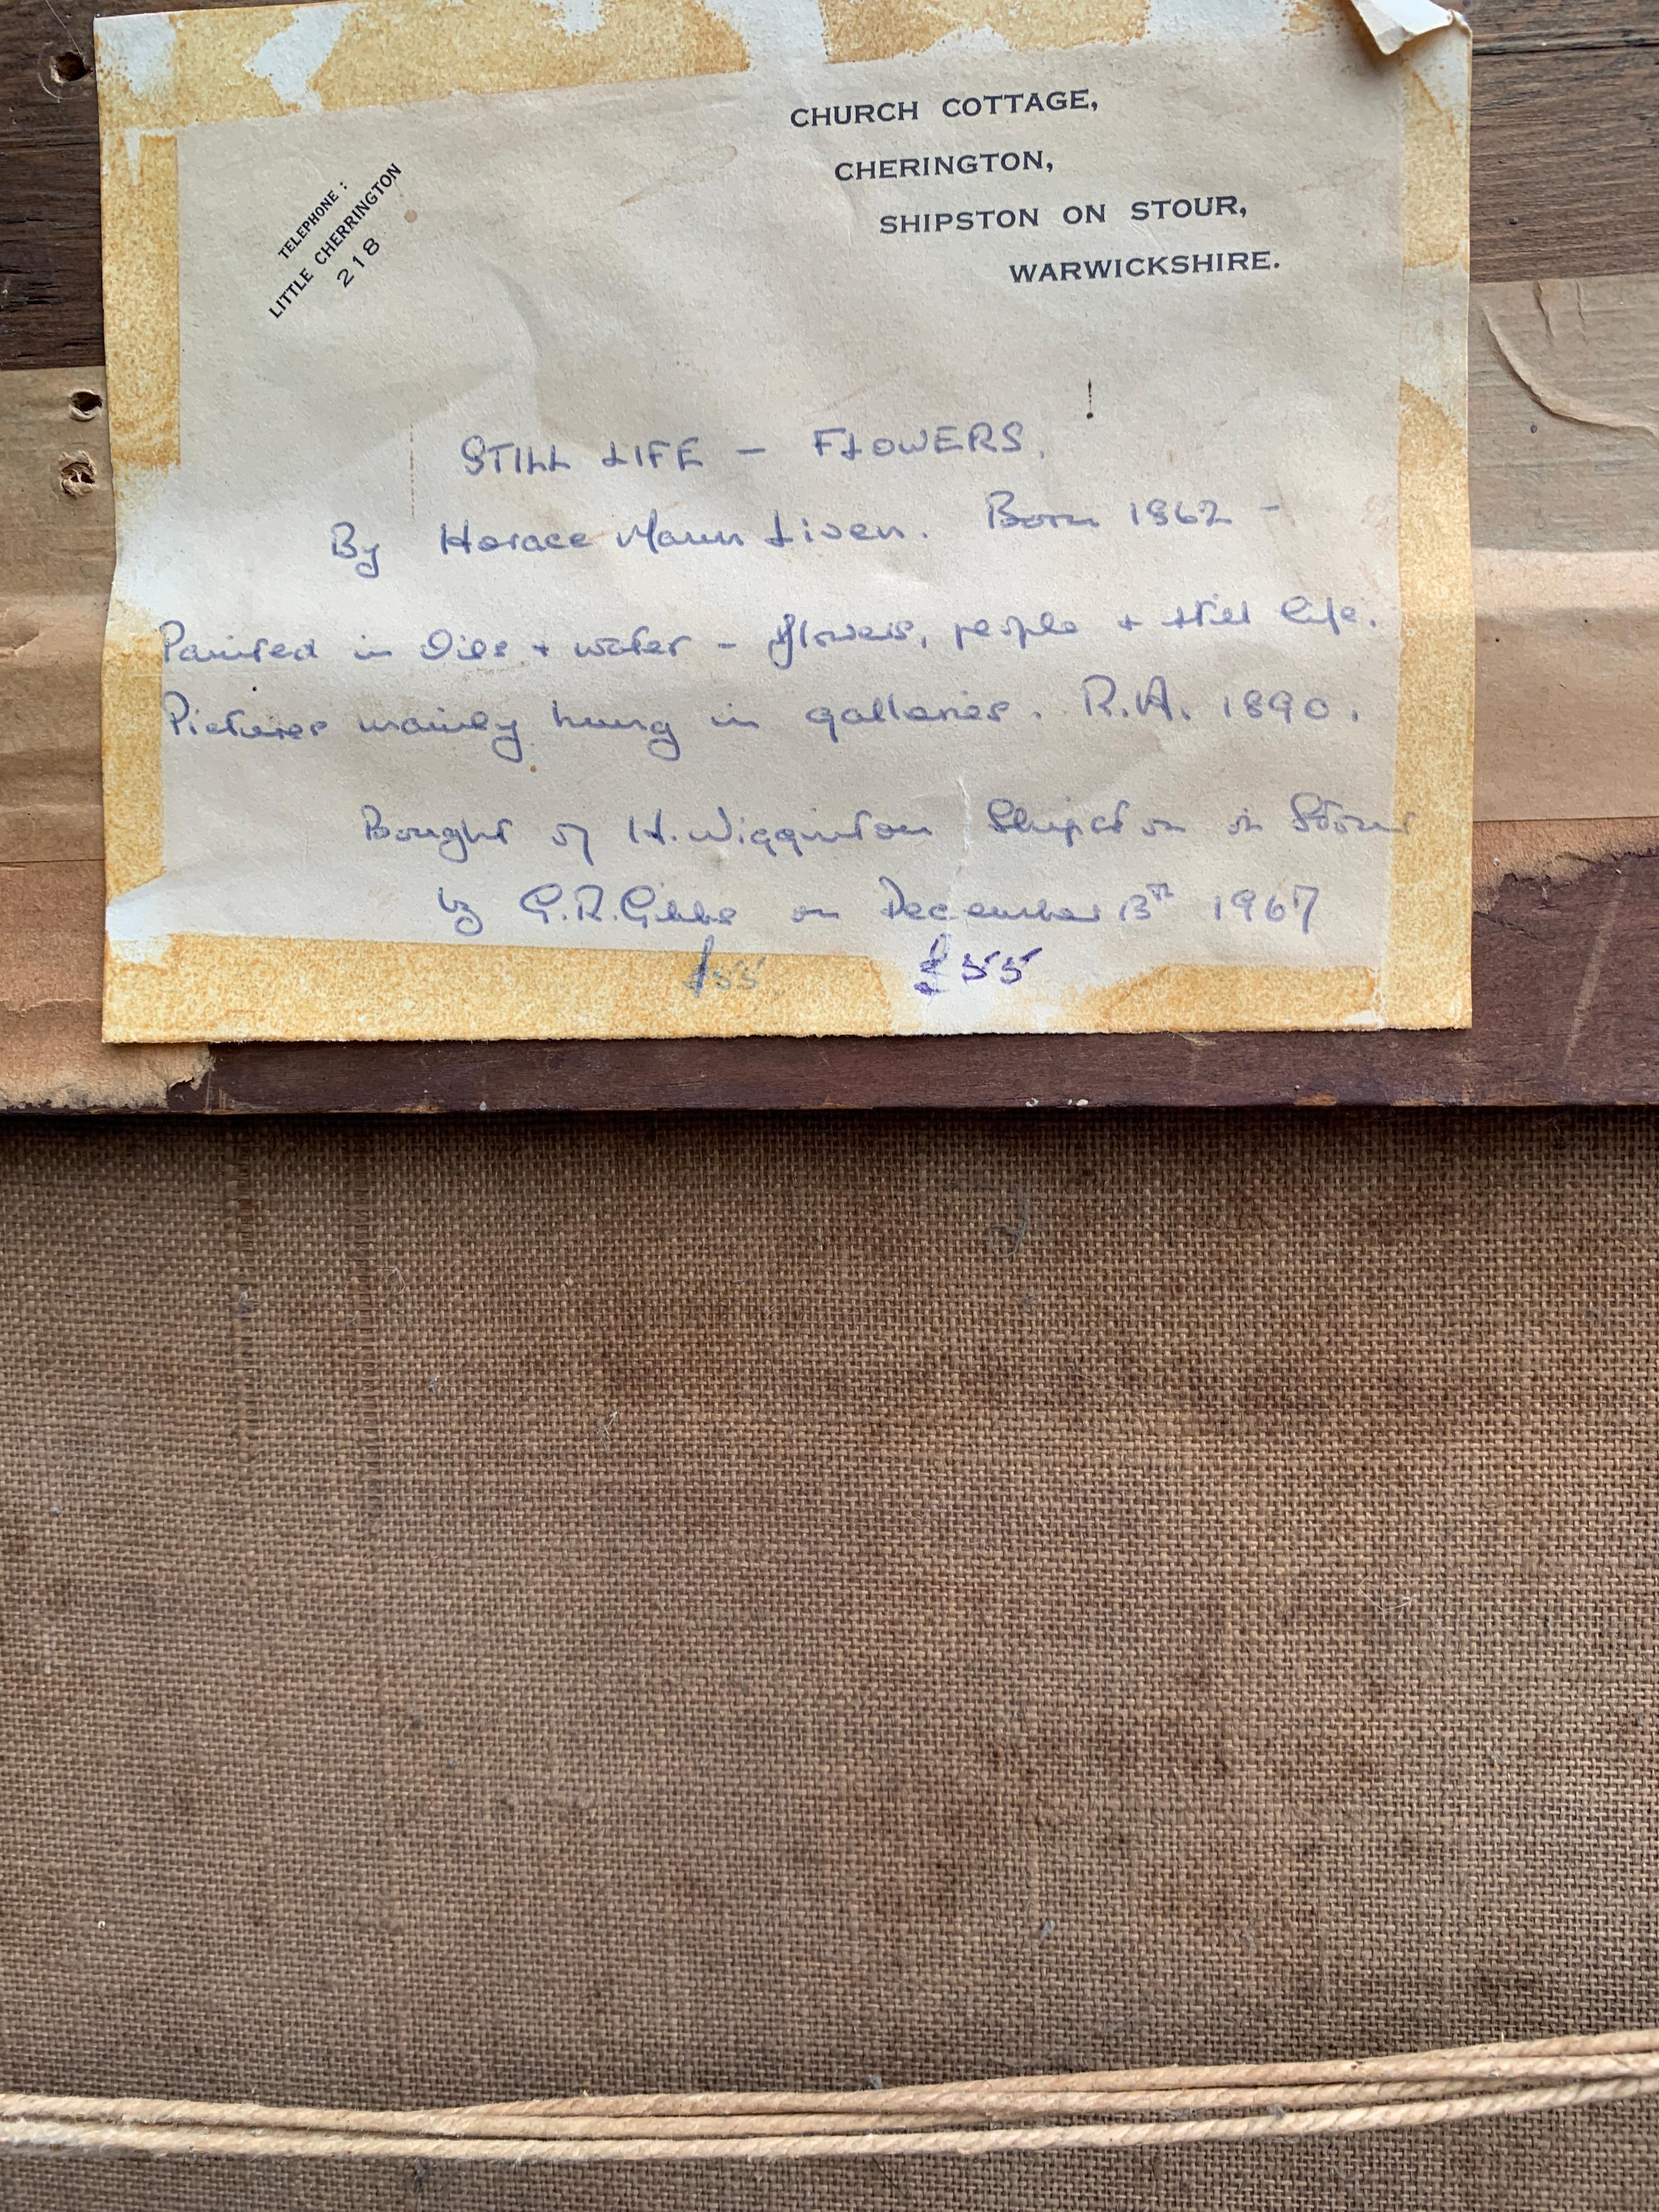 CHURCH COTTAGE,
CHERINGTON,
SHIPSTON ON STOUR,
WARWICKSHIRE.
TELEPHONE :
LITTLE CHERRINGTON
218
STILL LIFE - FLOWERS.
By Horace Mann Liven. Born 1862 -
Painted in Oils + water - flowers, people + still life.
Pictures mainly hung in galleries. R.A. 1890.
Bought of H. Wigginton Shipston on Stour
by G.R. Gibbs on December 13th 1967
£55 £55